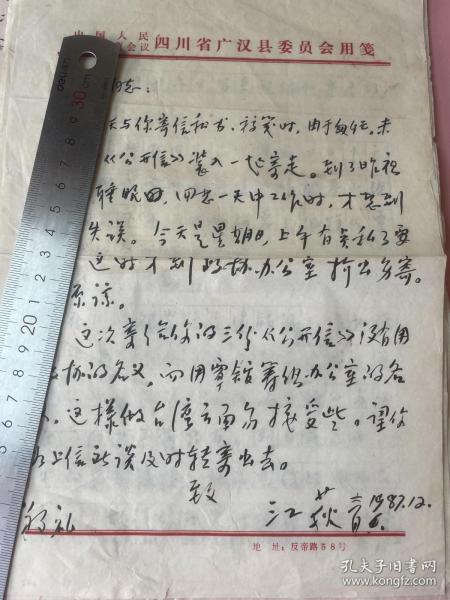 中国人民
会议
四川省广汉县委员会用笺
志：
天与你寄信和书、 时，由于匆忙，未
《公开信》装入一起寄走。到了昨夜
睡眠时，回想一天中工作时，才想到
失误。今天是星期日，上午有点私事要
这时才到政协办公室 出另寄。
原谅。
这次寄给你的三份《公开信》没有用
协的名义，而用 筹组办公室的名
这样做台湾方面易接受些。望你
上信所谈及时转寄出去。
致
敬礼
江荻 1987.12.6.
地址：反帝路58号
孔夫子旧书网